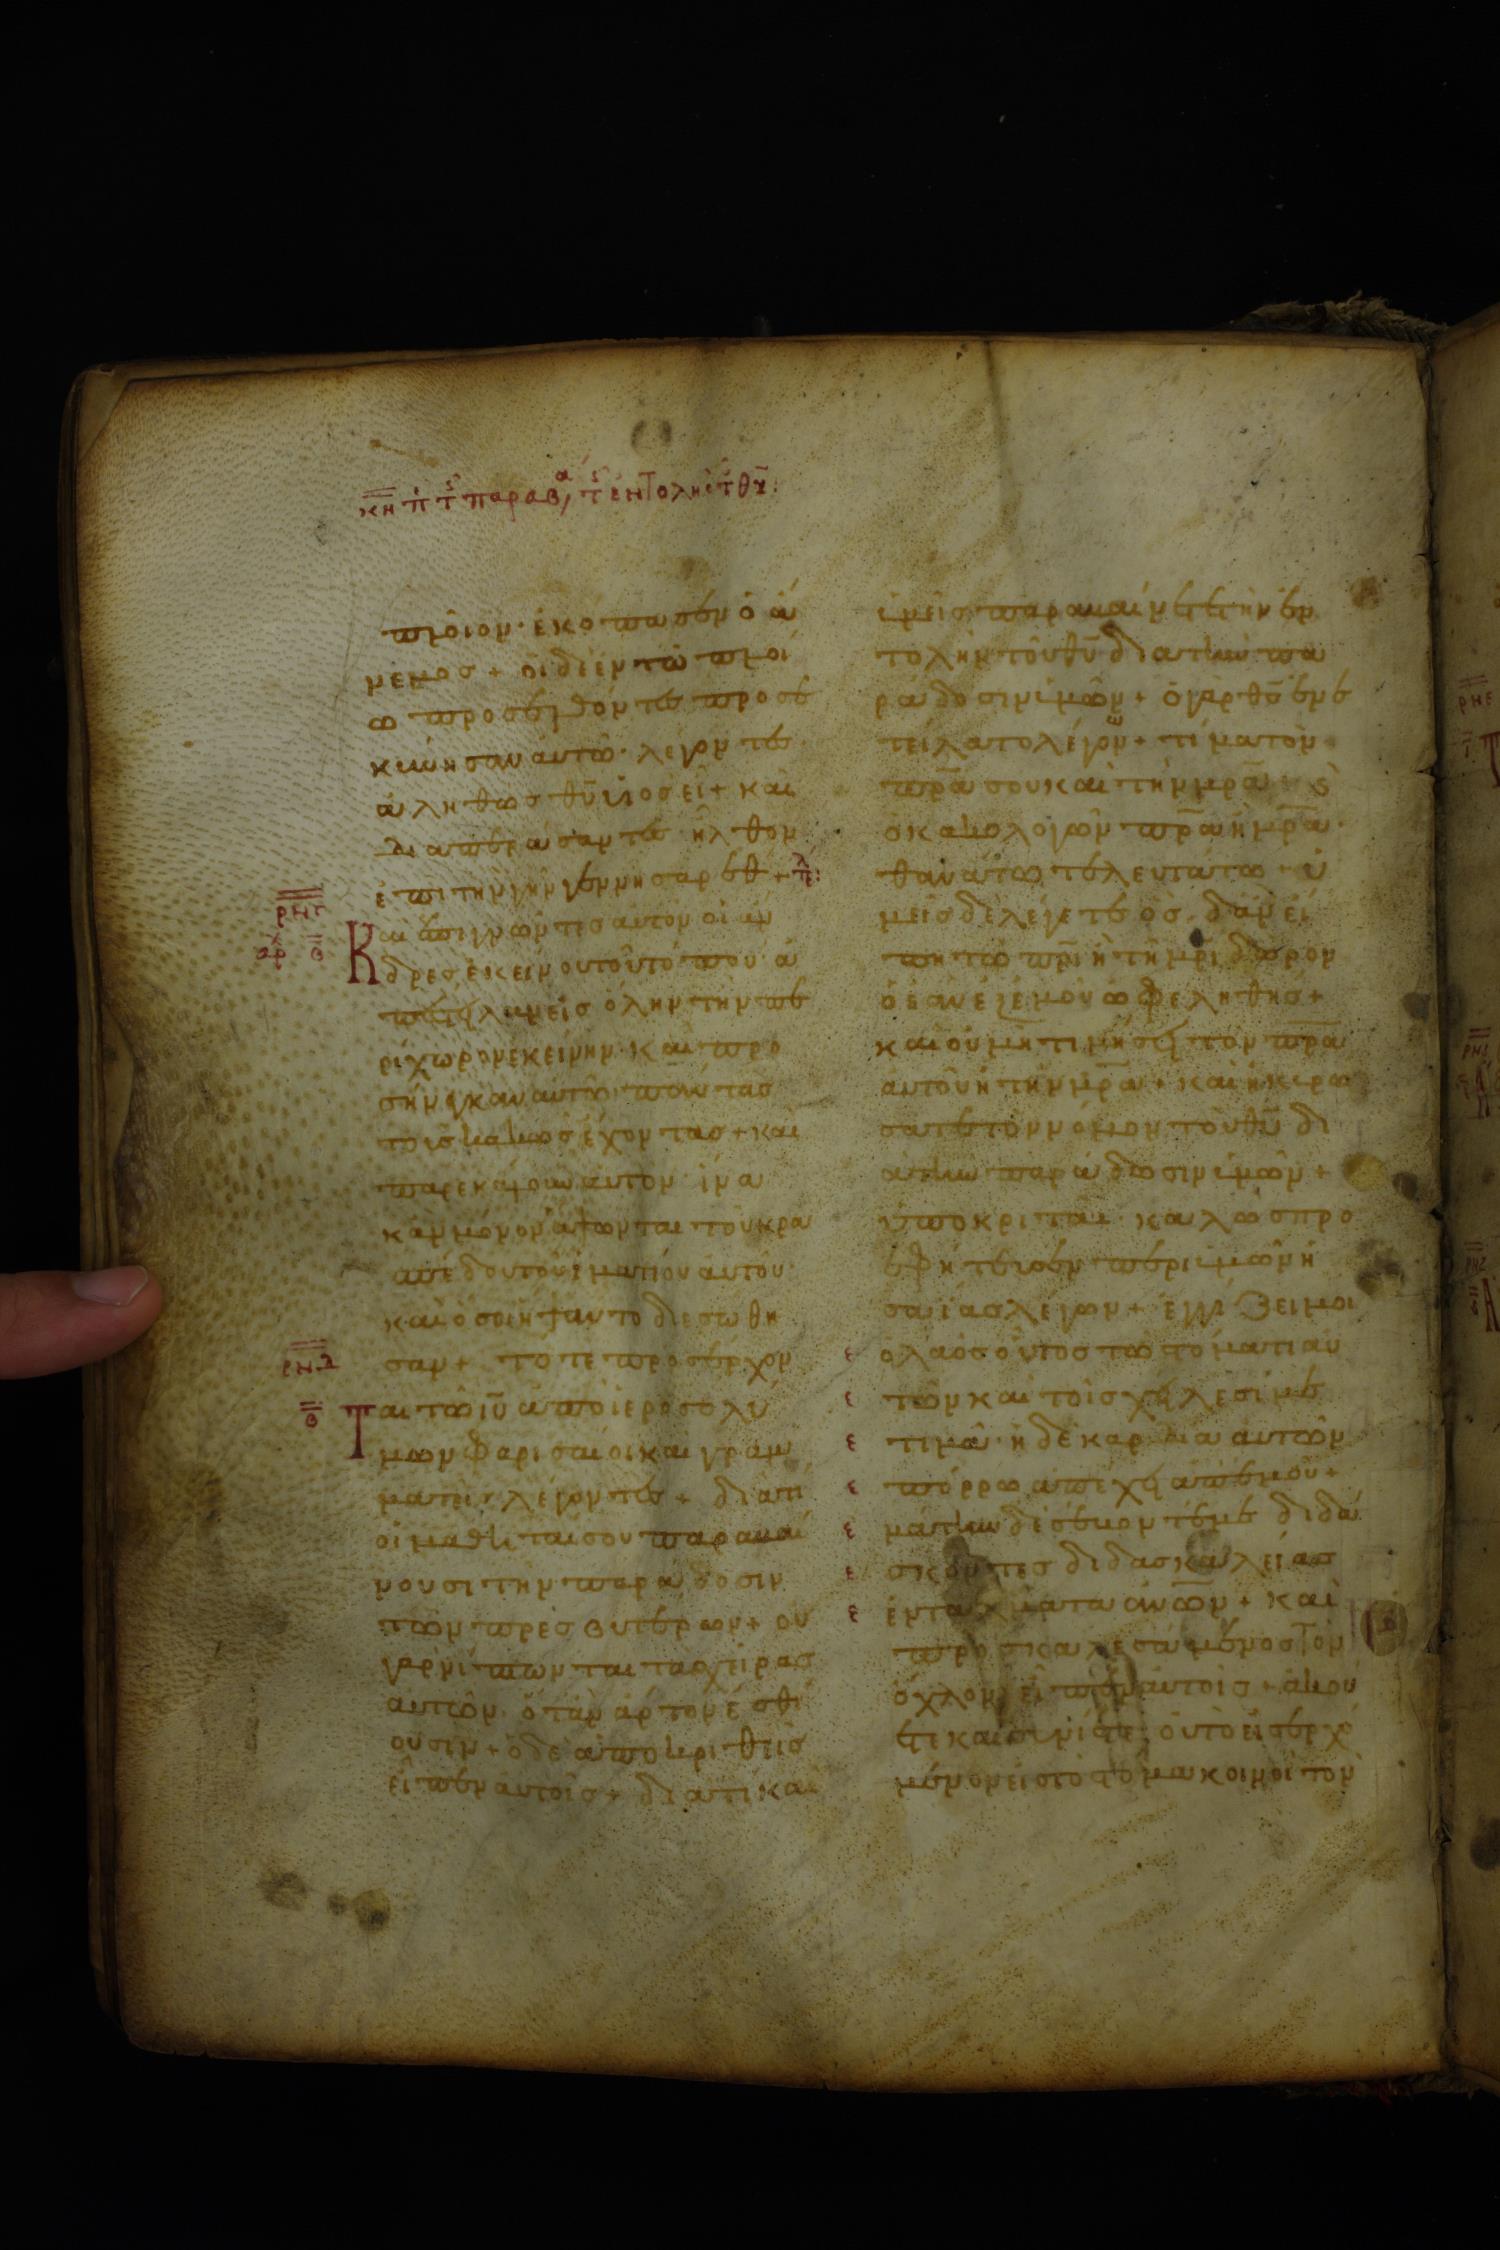 κη π τ παραβ, τ εντολησ τ θυ:
πλοῖον· ἐκόπασεν ὁ ἀ
νεμοσ + οἱ δὲ ἐν τῶ πλοί
ω προσελθόντεσ προσε
κύνησαν αὐτῶ· λέγοντεσ·
ἀληθῶσ θυ υἱὸσ εἶ + καὶ
διαπεράσαντεσ ἦλθον
ἐπι τὴν γῆν γεννησαρέθ +
ρνγ
Και ἐπιγνόντεσ αὐτὸν οἱ ἄν
δρεσ ἐκείνου τοῦ τόπου· ἀ
πέστειλαν εἰσ ὅλην τὴν πε
ρίχωρον ἐκείνην· καὶ προ
σήνεγκαν αὐτῶ πάντασ
τοὺσ κακῶσ ἔχοντασ + καὶ
παρεκάλουν αὐτὸν ἵνα
κἂν μόνον ἅψωνται τοῦ κρα
σπέδου τοῦ ἱματίου αὐτοῦ·
καὶ ὅσοι ἥψαντο διεσώθη
ρνδ
σαν + τότε προσέρχον
Ται τῶ ιυ ἀπὸ ἱεροσολύ
μων φαρισαῖοι καὶ γραμ
ματεῖσ λέγοντεσ + διατί
οἱ μαθηταί σου παραβαί
νουσι τὴν παράδοσιν
τῶν πρεσβυτέρων + οὐ
γὰρ νίπτωνται τασ χεῖρασ
αὐτῶν· ὅταν ἄρτον ἐσθί
ουσιν + ὁ δὲ ἀποκριθεὶσ
εἶπεν αὐτοῖσ + διατί καὶ
ὑμεῖσ παραβαίνετε τὴν ἐν
τολὴν τοῦ θυ διὰ τὴν πα
ράδοσιν ὑμῶν + ὁ γὰρ θσ ἐνε
τείλατο λέγων + τίμα τὸν
πρα σου καὶ τὴν μρα +
ὁ κακολογῶν πρα ἢ μρα·
θανάτω τελευτάτω + ὑ
μεῖσ δὲ λέγετε ὃσ δ' ἂν εἴ
πη τῶ πρι ἢ τῆ μρι δῶρον
ὃ ἐὰν ἐξ ἐμοῦ ὠφεληθησ +
καὶ οὐ μὴ τιμήσει τὸν πρα
αὐτοῦ ἢ τὴν μρα + καὶ ἠκυρώ
σατε τὸν νόμον τοῦ θυ δι
ὰ τὴν παράδοσιν ὑμῶν +
ὑποκριταὶ· καλῶσ προ
εφήτευσεν περὶ ὑμῶν ἡ
σαΐασ λέγων + ἐγγίζει μοι
ὁ λαὸσ οὗτοσ τῶ στόματι αὐ
τῶν καὶ τοῖσ χείλεσί με
τιμᾶ· ἡ δὲ καρδία αὐτῶν
πόρρω ἀπέχει ἀπ' ἐμοῦ +
μάτην δὲ σέβονταί με διδά
σκοντεσ διδασκαλείασ
ἐντάλματα ανων + καὶ
προσκαλεσάμενοσ τὸν
ὄχλον εἶπεν αὐτοῖσ + ἀκού
ετε καὶ συνίετε· οὐ τὸ εἰσερχό
μενον εἰσ τὸ στόμα κοινοῖ τὸν